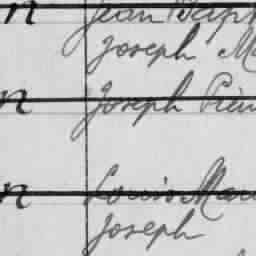 n Jean Bapt
Joseph Ma
n Joseph Pier
n Louis Mari
Joseph